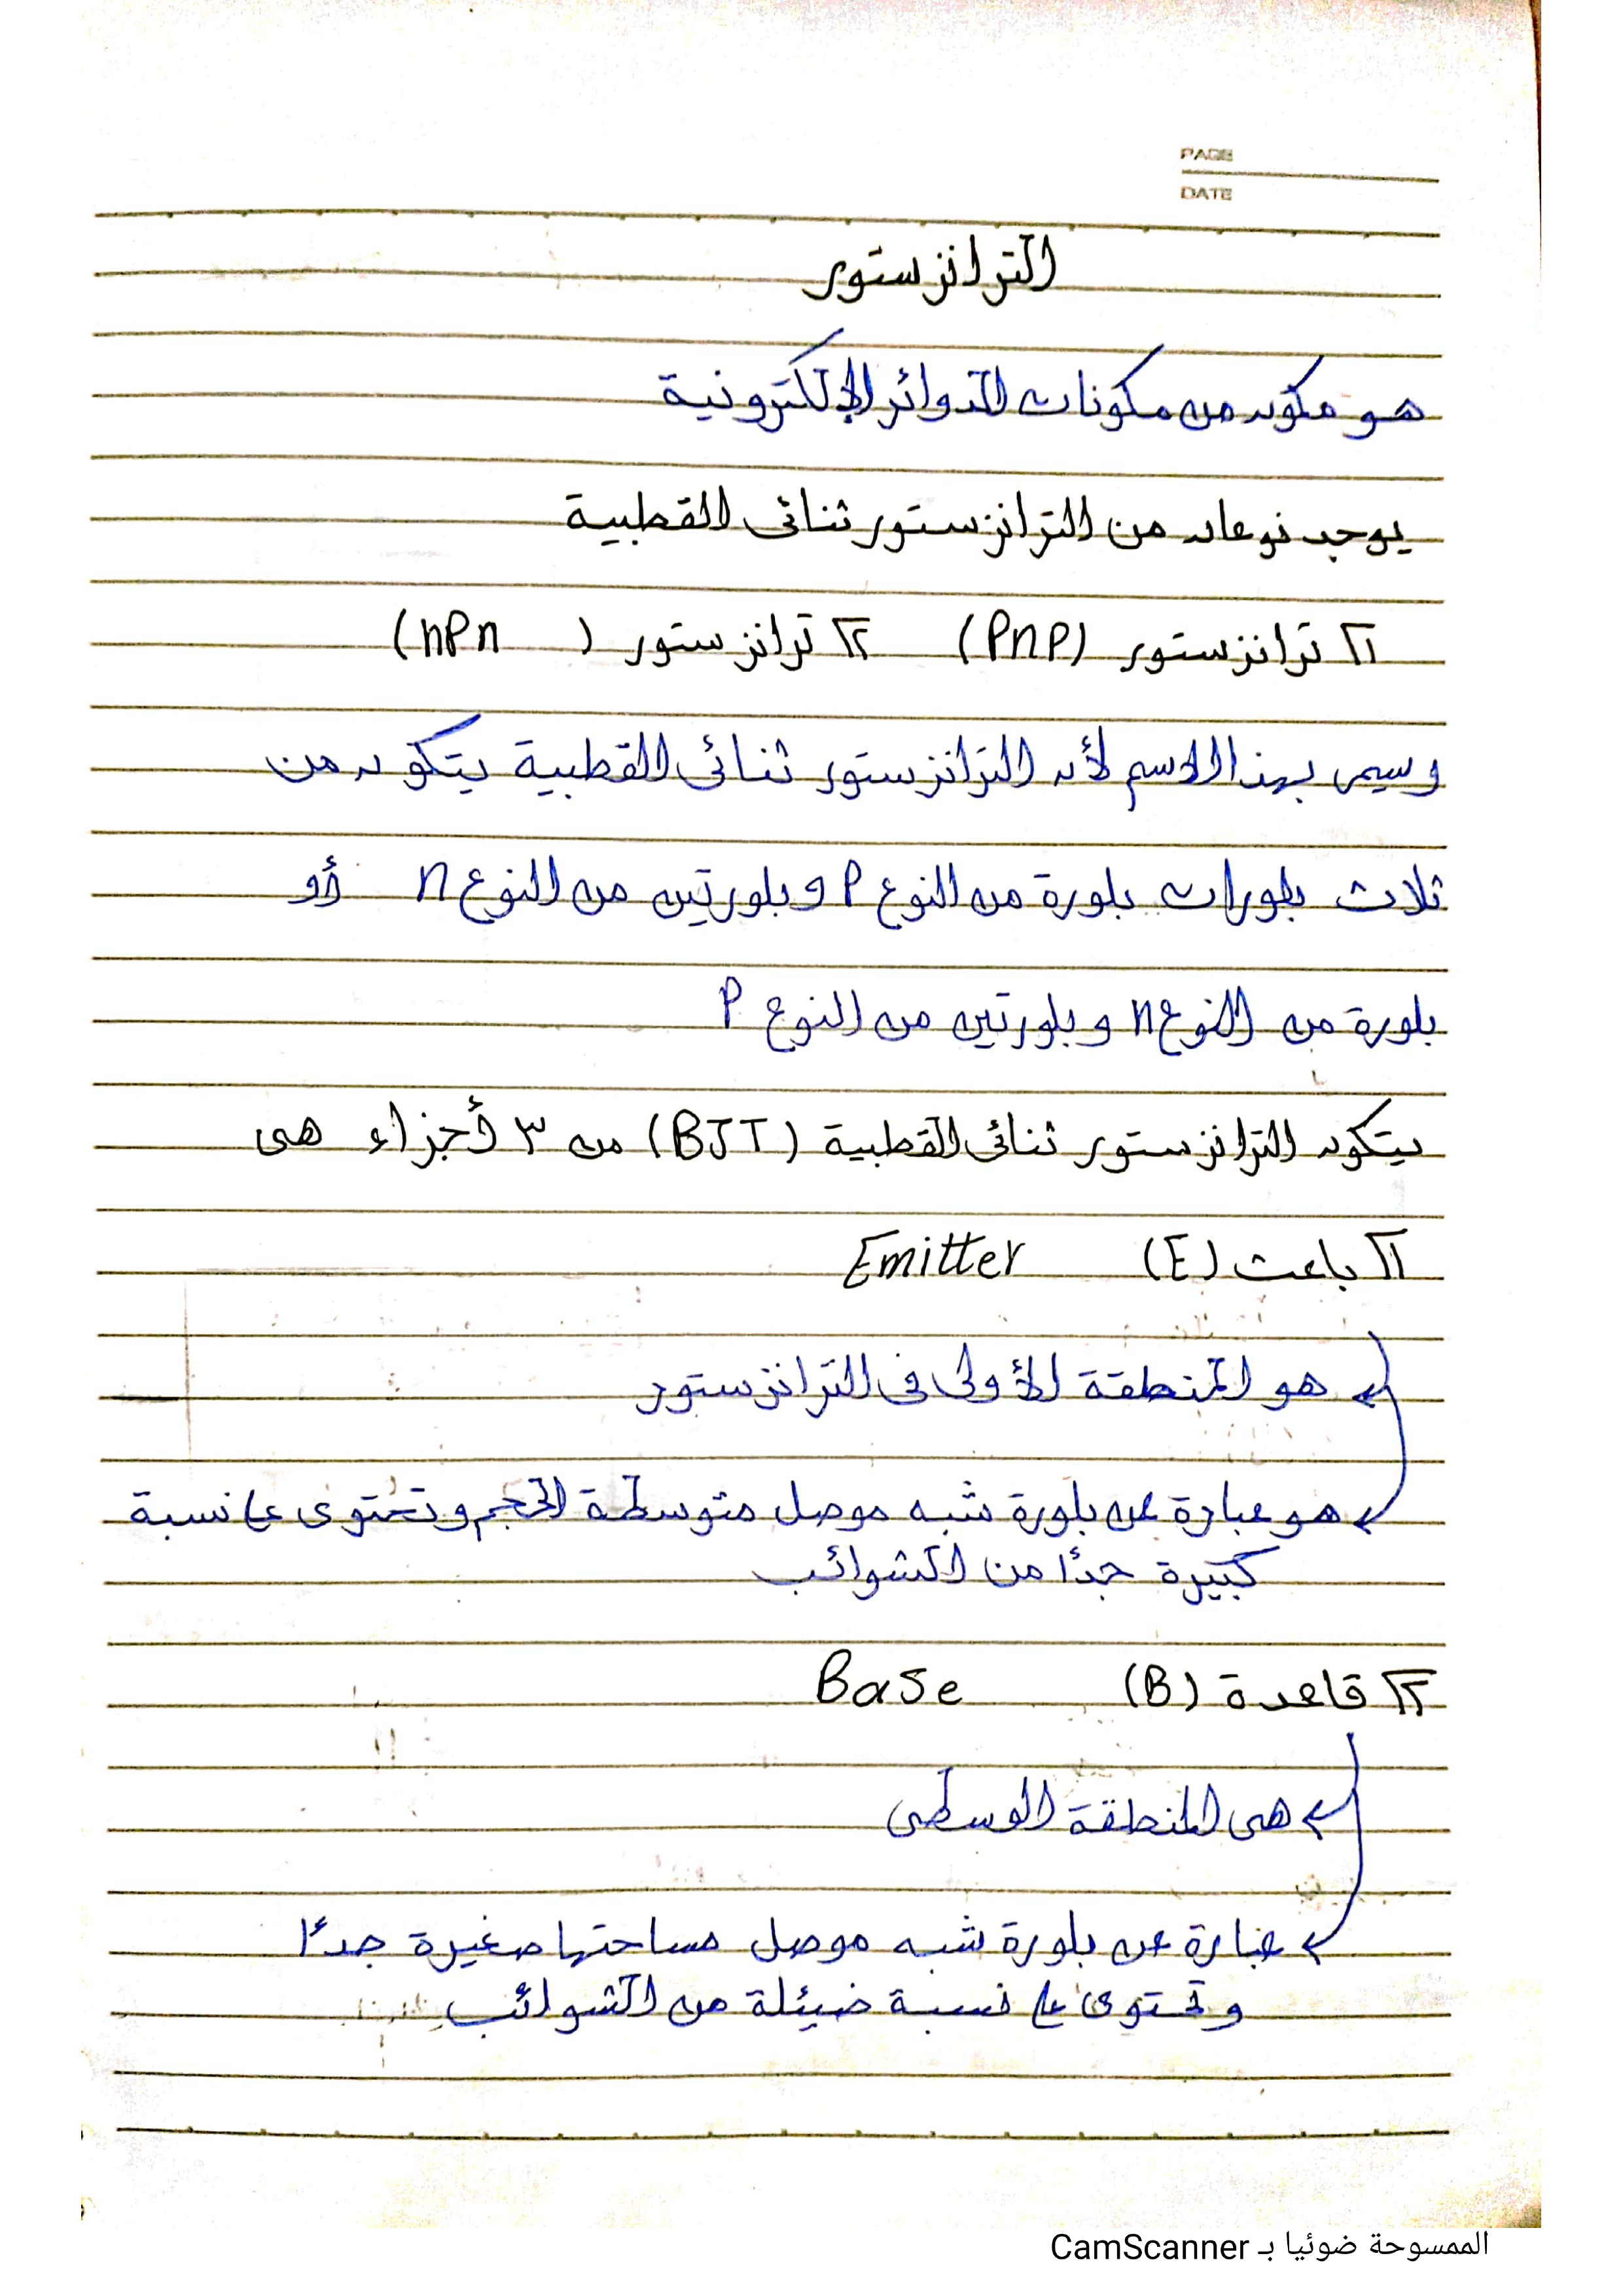 PAGE
DATE
الترانزستور
هو مكون من مكونات الدوائر الإلكترونية
يوجد نوعان من الترانزستور ثنائى القطبية
١ ترانزستور (PnP) ٢ ترانزستور ( nPn)
وسمى بهذا الاسم لأن الترانزستور ثنائى القطبية يتكون من
ثلاث بلورات بلورة من النوع P وبلورتين من النوع n أو
بلورة من النوع n وبلورتين من النوع P
يتكون الترانزستور ثنائى القطبية (BJT) من ٣ أجزاء هى
١ باعث (E) Emitter
هو المنطقة الأولى فى الترانزستور
هو عبارة عن بلورة شبه موصل متوسطة الحجم وتحتوى على نسبة
كبيرة جدًا من الشوائب
٢ قاعدة (B) Base
هى المنطقة الوسطى
عبارة عن بلورة شبه موصل مساحتها صغيرة جدًا
وتحتوى على نسبة ضيئلة من الشوائب
الممسوحة ضوئيا بـ CamScanner